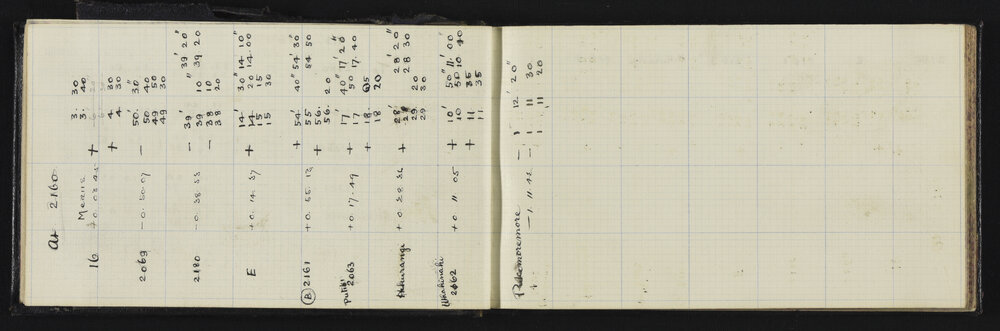 At 2160
Means
16 + 0. 03 45 + 3. 30
3. 40
+ 4 30
4 30
2069 - 0. 50. 07 - 50. 30"
50 40
49 50
49 30
2180 - 0. 38. 53 - 39' 10" 39' 20"
39 10 39 20
- 38 20
38
E + 0. 14. 37 + 14' 30" 14. 10"
14. 20 14. 00
15 15
15 30
(B) 2161 + 0. 55. 13 + 54' 40" 54' 30"
55 54 50
+ 56. 20
56.
Putiki
2063 + 0 17. 49 + 17' 40" 17' 20"
17 50 17. 40
+ 18 05
18. 20
Hikurangi + 0 28. 56 + 28' 28' 20"
28 28 30
29. 20
29 30
2062 + 0 11 05 + 10' 50" 11' 00"
10 50 10 40
+ 11 35
11 35
Pukemoremore
- 1. 11. 42 - 1 12' 20"
- 1. 11 30
11 20